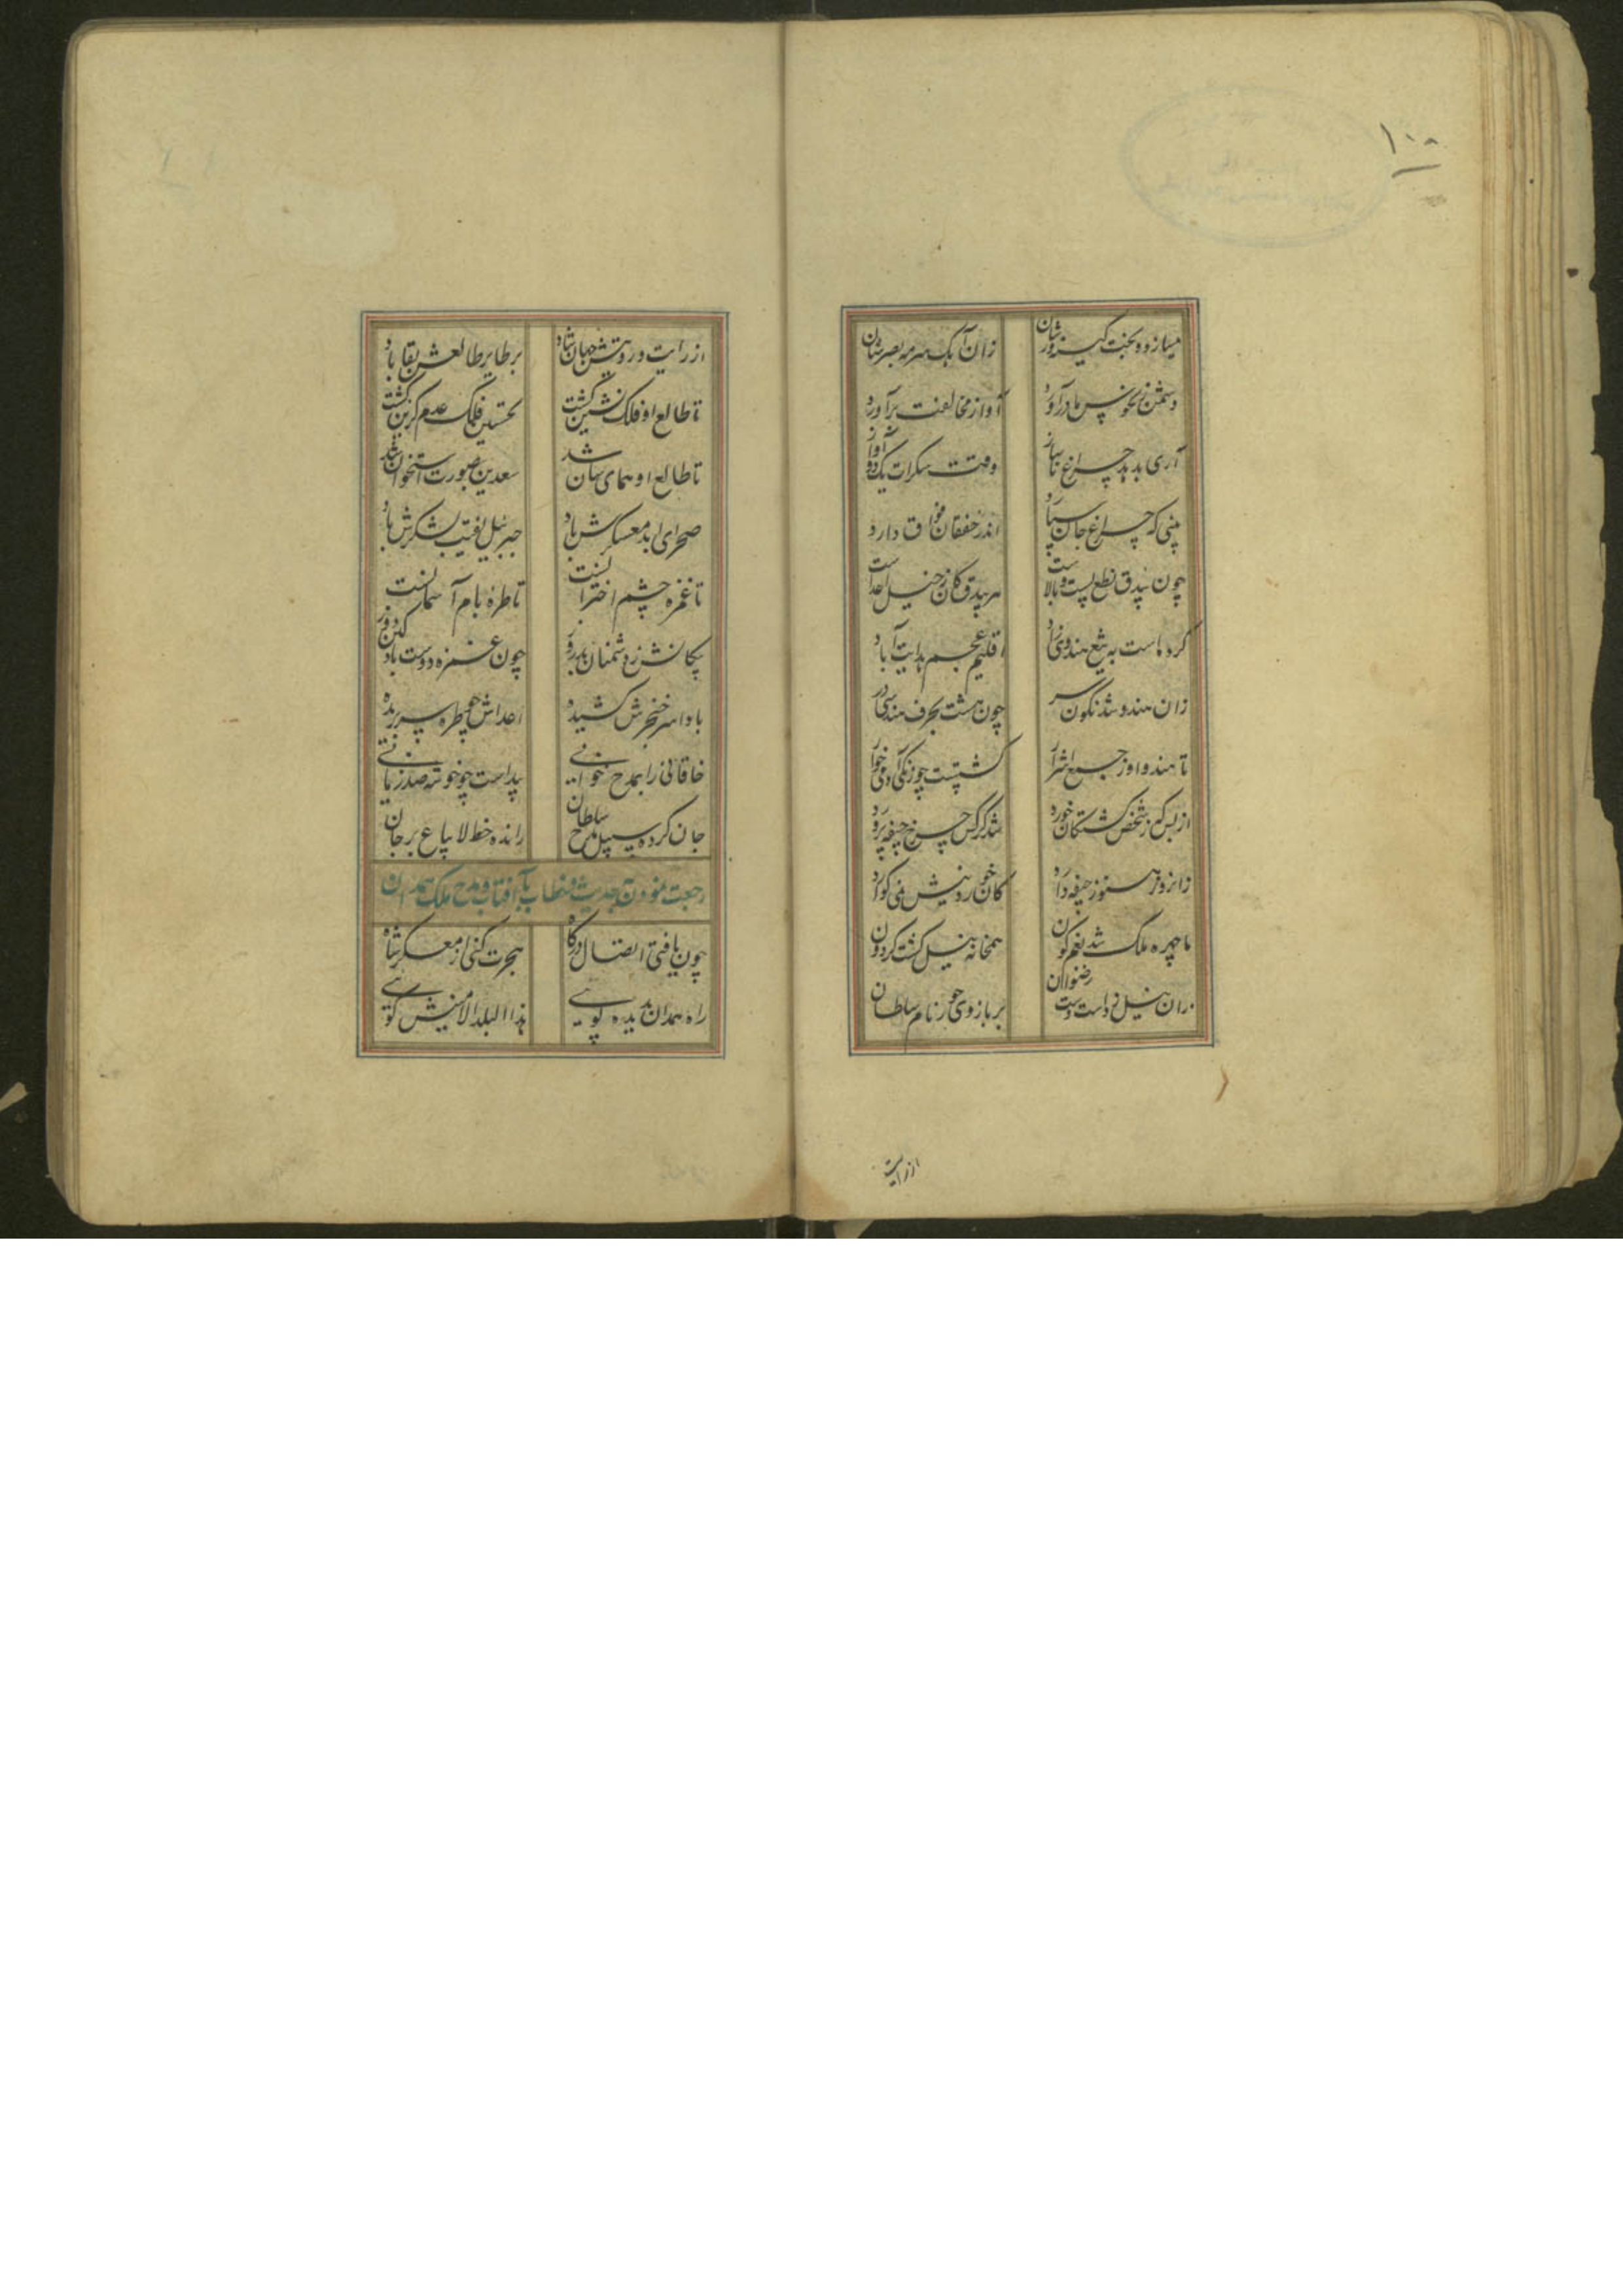 ۱۰۰
میسازد و بخت کینه ورشان زان آبک سرمه بصرشان
دشمن ز نحوس مادرآورد آواز مخالفت برآورد
آری بدهد چراغ ناساز وقت سکرات یک دو آواز
بینی که چراغ جان سپارد اندر خفقان فواق دارد
چون بیدق نطع پست و بالاست هر بیدق کان ز خیل اعداست
کرده است به تیغ هندوی زاد اقلیم عجم هدایت آباد
زان هندو شد نگون سر چون هشت بحرف هندسی در
تا هند و او ز جمع اشرار گشتست چو زنگی آدمی خوار
از بس که ز شخص کشتگان خورد شد کرکس چرخ جیفه پرورد
زانروز هنوز جیفه دارد کان خوردنیش نمی گوارد
با چهره ملک شد بقم گون همخانه نیل گشت گردون
زان نیل زده است دست رضوان بر بازوی حور نام سلطان
از رایت
از رایت و رویتش جهان شاد بر طایر طالعش بقا باد
تا طالع او فلک نشین گشت نحسین فلک عدم گزین گشت
تا طالع او همای سان شد سعدین بصورت استخوان شد
صحرای ابد معسکرش باد جبریل نقیب لشکرش باد
تا غمزه چشم اخترانست تا طره بام آسمانست
پیکانش ز دشمنان بدرو چون غمزه دوست باد
بادا سر خنجرش کشیده اعداش چو طره سر بریده
خاقانی را بمدح خوانی پیداست چو خوشه صد زبانی
جان کرده سبیل مدح سلطان رانده خط لایباع بر جان
رجعت نمودن بحدیث و خطاب بآفتاب و مدح ملک همدان
چون یافتی اتصال درگاه هجرت کنی از معسکر شاه
راه همدان بدیده پویی هذا البلد الامینش گویی